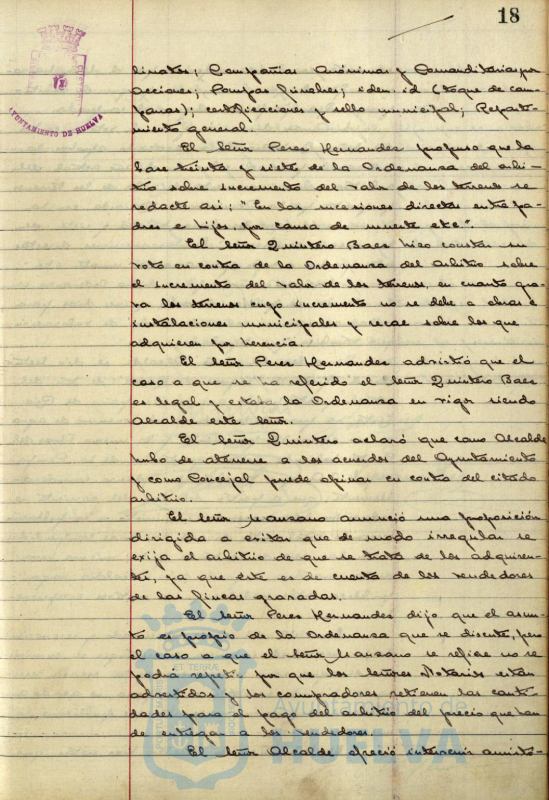 18
AYUNTAMIENTO DE HUELVA
Compañias Anónimas y Comanditarias por
acciones; Pompas fúnebres; idem. id (toque de cam-
panas); certificaciones y sello municipal; Reparti-
miento general.
El Señor Perez Hernandez propuso que la
base treinta y siete de la Ordenanza del arbi-
trio sobre incremento del valor de los terrenos se
redacte asi; "En las sucesiones directas entre pa-
dres e hijos, por causa de muerte etc."
El Señor Quintero Baez hizo constar su
voto en contra de la Ordenanza del arbitrio sobre
el incremento del valor de los terrenos, en cuanto gra-
va los terrenos cuyo incremento no se debe a obras e
instalaciones municipales y recae sobre los que
adquieren por herencia.
El Señor Perez Hernandez advirtió que el
caso a que se ha referido el Señor Quintero Baez
es legal y estaba la Ordenanza en vigor siendo
Alcalde este Señor.
El Señor Quintero aclaró que como Alcalde
hubo de atenerse a los acuerdos del Ayuntamiento
y como Concejal puede opinar en contra del citado
arbitrio.
El Señor Manzano anunció una proposición
dirigida a evitar que de modo irregular se
exija el arbitrio de que se trata de los adquiren-
tes, ya que éste es de cuenta de los vendedores
de las fincas gravadas.
El Señor Perez Hernandez dijo que el asun-
to es propio de la Ordenanza que se discute, pero
el caso a que el Señor Manzano se refiere no se
podrá repetir por que los Señores Notarios estan
advertidos y los compradores retienen las canti-
dades para el pago del arbitrio del precio que han
de entregar a los vendedores.
El Señor Alcalde ofreció intervenir amisto-
ET TERRÆ
Ayuntamiento de
HUELVA